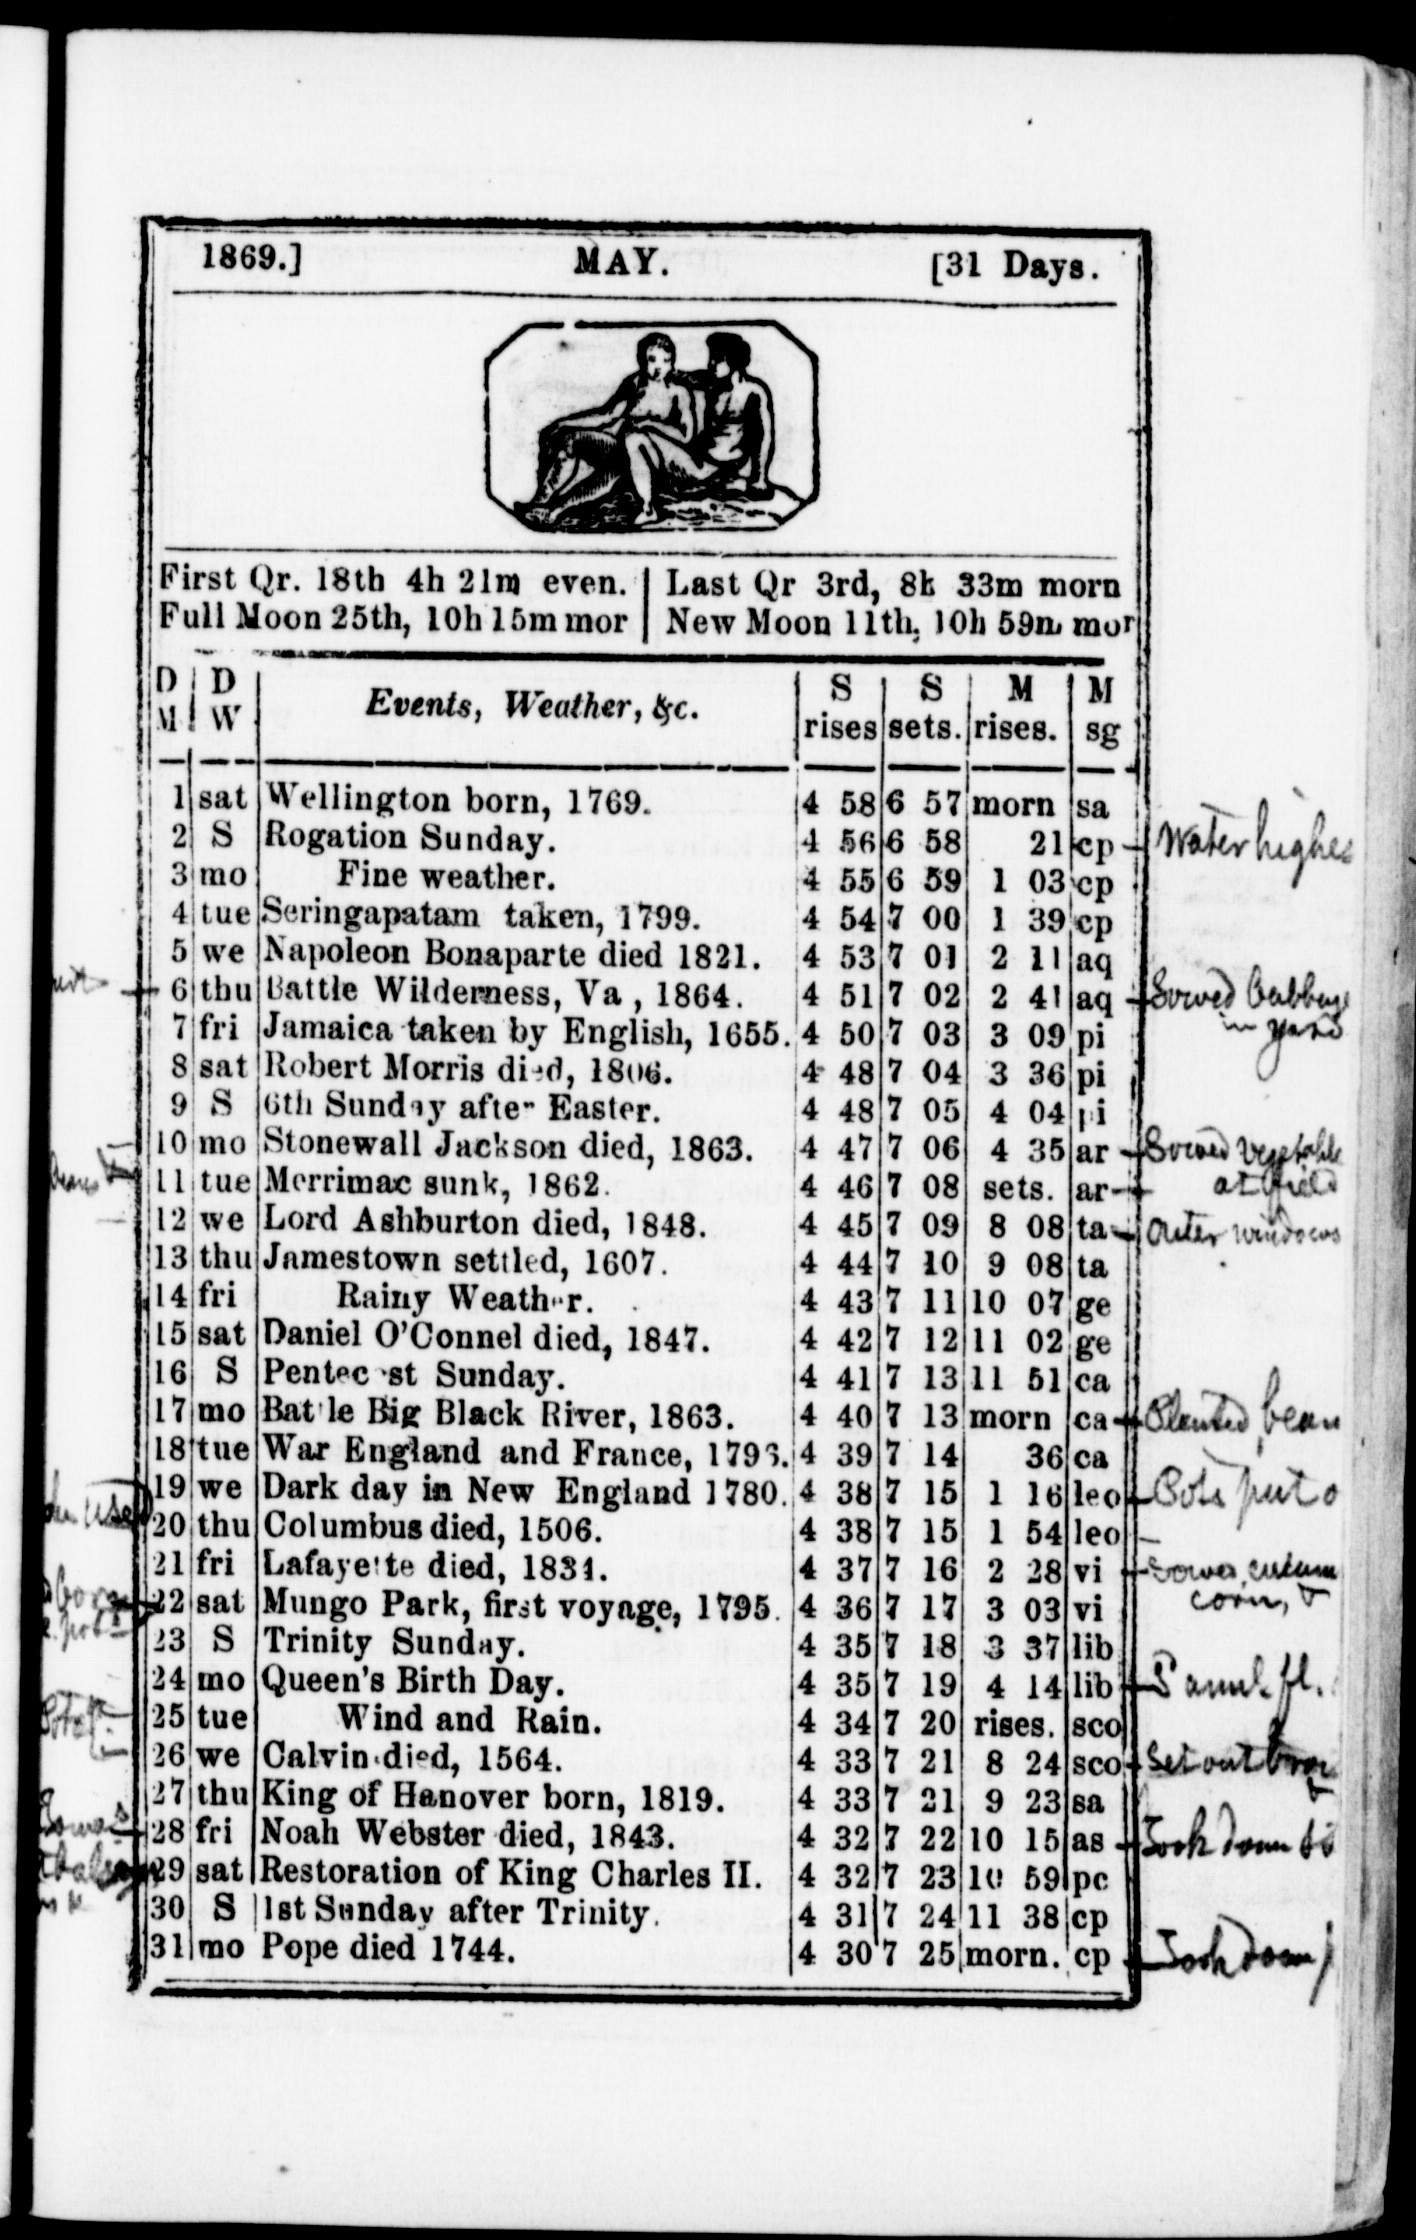 1869.] MAY. [31 Days.
First Qr. 18th 4h 21m even. | Last Qr 3rd, 8h 33m morn
Full Moon 25th, 10h 15m mor | New Moon 11th, 10h 59m mor
D M | D W | Events, Weather, &c. | S rises | S sets. | M rises. | M sg
1 sat Wellington born, 1769. 4 58 6 57 morn sa
2 S Rogation Sunday. 4 56 6 58 21 cp Water highes
3 mo Fine weather. 4 55 6 59 1 03 cp
4 tue Seringapatam taken, 1799. 4 54 7 00 1 39 cp
5 we Napoleon Bonaparte died 1821. 4 53 7 01 2 11 aq
6 thu Battle Wilderness, Va , 1864. 4 51 7 02 2 41 aq Sowed Cabbage
in yard
7 fri Jamaica taken by English, 1655. 4 50 7 03 3 09 pi
8 sat Robert Morris died, 1806. 4 48 7 04 3 36 pi
9 S 6th Sunday after Easter. 4 48 7 05 4 04 pi
10 mo Stonewall Jackson died, 1863. 4 47 7 06 4 35 ar Sowed vegetable
at field
11 tue Merrimac sunk, 1862. 4 46 7 08 sets. ar
12 we Lord Ashburton died, 1848. 4 45 7 09 8 08 ta Outer windows
13 thu Jamestown settled, 1607. 4 44 7 10 9 08 ta
14 fri Rainy Weather. 4 43 7 11 10 07 ge
15 sat Daniel O'Connel died, 1847. 4 42 7 12 11 02 ge
16 S Pentecost Sunday. 4 41 7 13 11 51 ca
17 mo Battle Big Black River, 1863. 4 40 7 13 morn ca Planted bean
18 tue War England and France, 1793. 4 39 7 14 36 ca
19 we Dark day in New England 1780. 4 38 7 15 1 16 leo Pots put o
20 thu Columbus died, 1506. 4 38 7 15 1 54 leo
21 fri Lafayette died, 1834. 4 37 7 16 2 28 vi Sowed cucum
corn, &
22 sat Mungo Park, first voyage, 1795. 4 36 7 17 3 03 vi
23 S Trinity Sunday. 4 35 7 18 3 37 lib
24 mo Queen's Birth Day. 4 35 7 19 4 14 lib
25 tue Wind and Rain. 4 34 7 20 rises. sco
26 we Calvin died, 1564. 4 33 7 21 8 24 sco Set out
27 thu King of Hanover born, 1819. 4 33 7 21 9 23 sa
28 fri Noah Webster died, 1843. 4 32 7 22 10 15 as Took down
29 sat Restoration of King Charles II. 4 32 7 23 10 59 pc
30 S 1st Sunday after Trinity. 4 31 7 24 11 38 cp
31 mo Pope died 1744. 4 30 7 25 morn. cp Took down